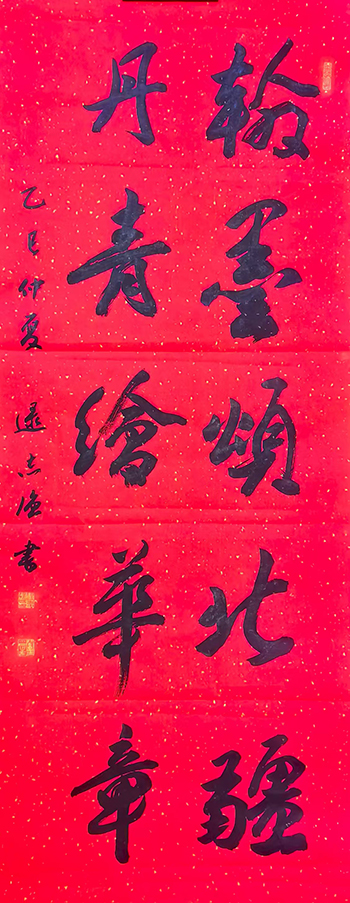 翰墨頌北疆
丹青繪華章
乙巳仲夏
志
書